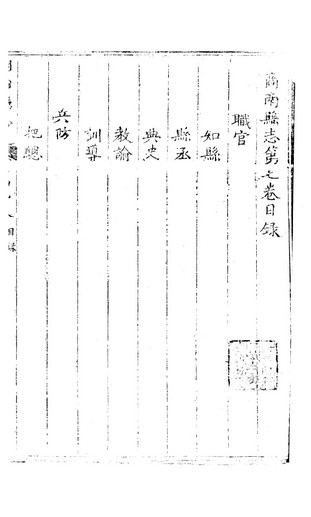 商南縣志第七卷目录
職官
知縣
縣丞
典史
教諭
訓導
兵防
把總